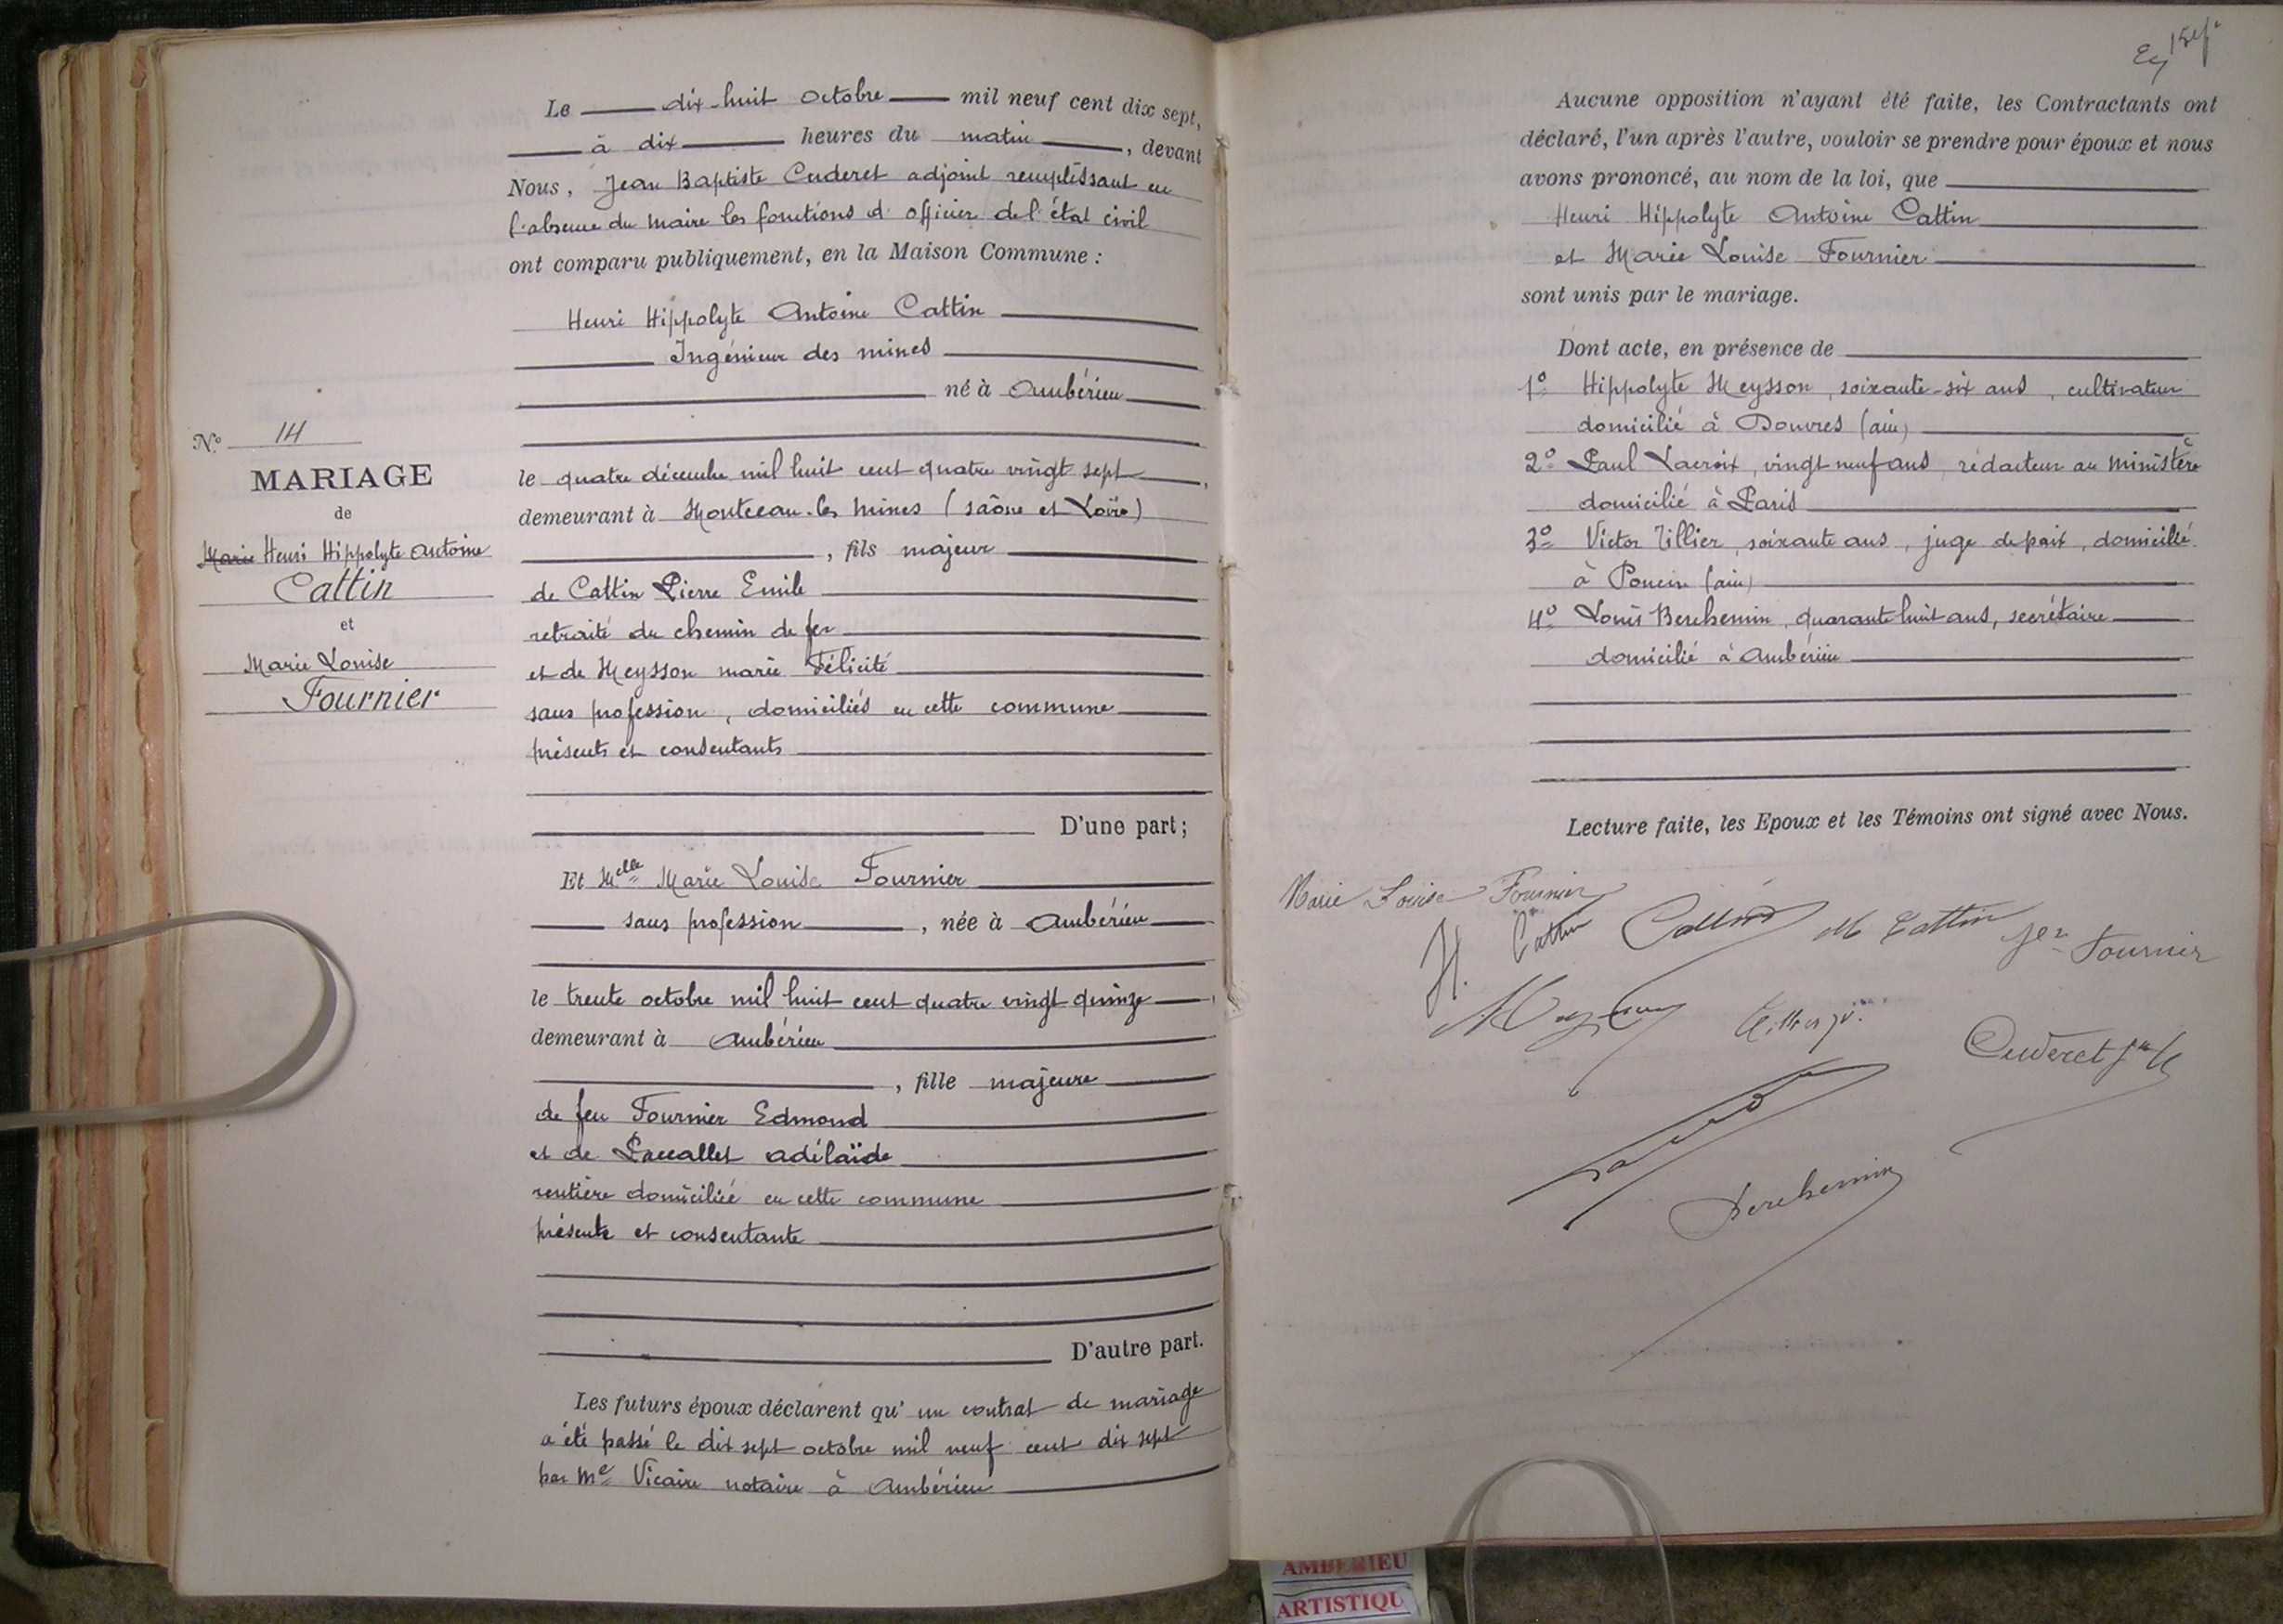 Le dix-huit Octobre mil neuf cent dix sept,
à dix heures du matin, devant
Nous, Jean Baptiste Cuderet adjoint remplissant en
l'absence du Maire les fonctions d'officier de l'état civil
ont comparu publiquement, en la Maison Commune :
Henri Hippolyte Antoine Cattin
Ingénieur des mines
né à Ambérieu
le quatre décembre mil huit cent quatre vingt sept,
demeurant à Montceau-les Mines (Saône et Loire)
, fils majeur
de Cattin Pierre Emile
retraité du chemin de fer
et de Meysson marie Félicité
sans profession, domiciliés en cette commune
présents et consentants
D'une part ;
Et Melle Marie Louise Fournier
sans profession, née à Ambérieu
le trente octobre mil huit cent quatre vingt quinze,
demeurant à Ambérieu
, fille majeure
de feu Fournier Edmond
et de adélaïde
rentière domiciliée en cette commune
présente et consentante
D'autre part.
Les futurs époux déclarent qu'un contrat de mariage
a été passé le dix sept octobre mil neuf cent dix sept
par Me Vicaire notaire à Ambérieu
No 14
MARIAGE
de
Marie Henri Hippolyte Antoine
Cattin
et
Marie Louise
Fournier
Aucune opposition n'ayant été faite, les Contractants ont
déclaré, l'un après l'autre, vouloir se prendre pour époux et nous
avons prononcé, au nom de la loi, que
Henri Hippolyte Antoine Cattin
et Marie Louise Fournier
sont unis par le mariage.
Dont acte, en présence de
1o Hippolyte Meysson, soixante-six ans, cultivateur
domicilié à Douvres (ain)
2o Paul Lacroix, vingt neuf ans, rédacteur au Ministère
domicilié à Paris
3o Victor Tillier, soixante ans, juge de paix, domicilié
à Poncin (ain)
4o Louis Berchemin, quarante huit ans, secrétaire
domicilié à Ambérieu
Lecture faite, les Epoux et les Témoins ont signé avec Nous.
Marie Louise Fournier
H. Cattin Cattin M Cattin Fournier
Meysson
Cuderet
Berchemin
AMBERIEU
ARTISTIQU